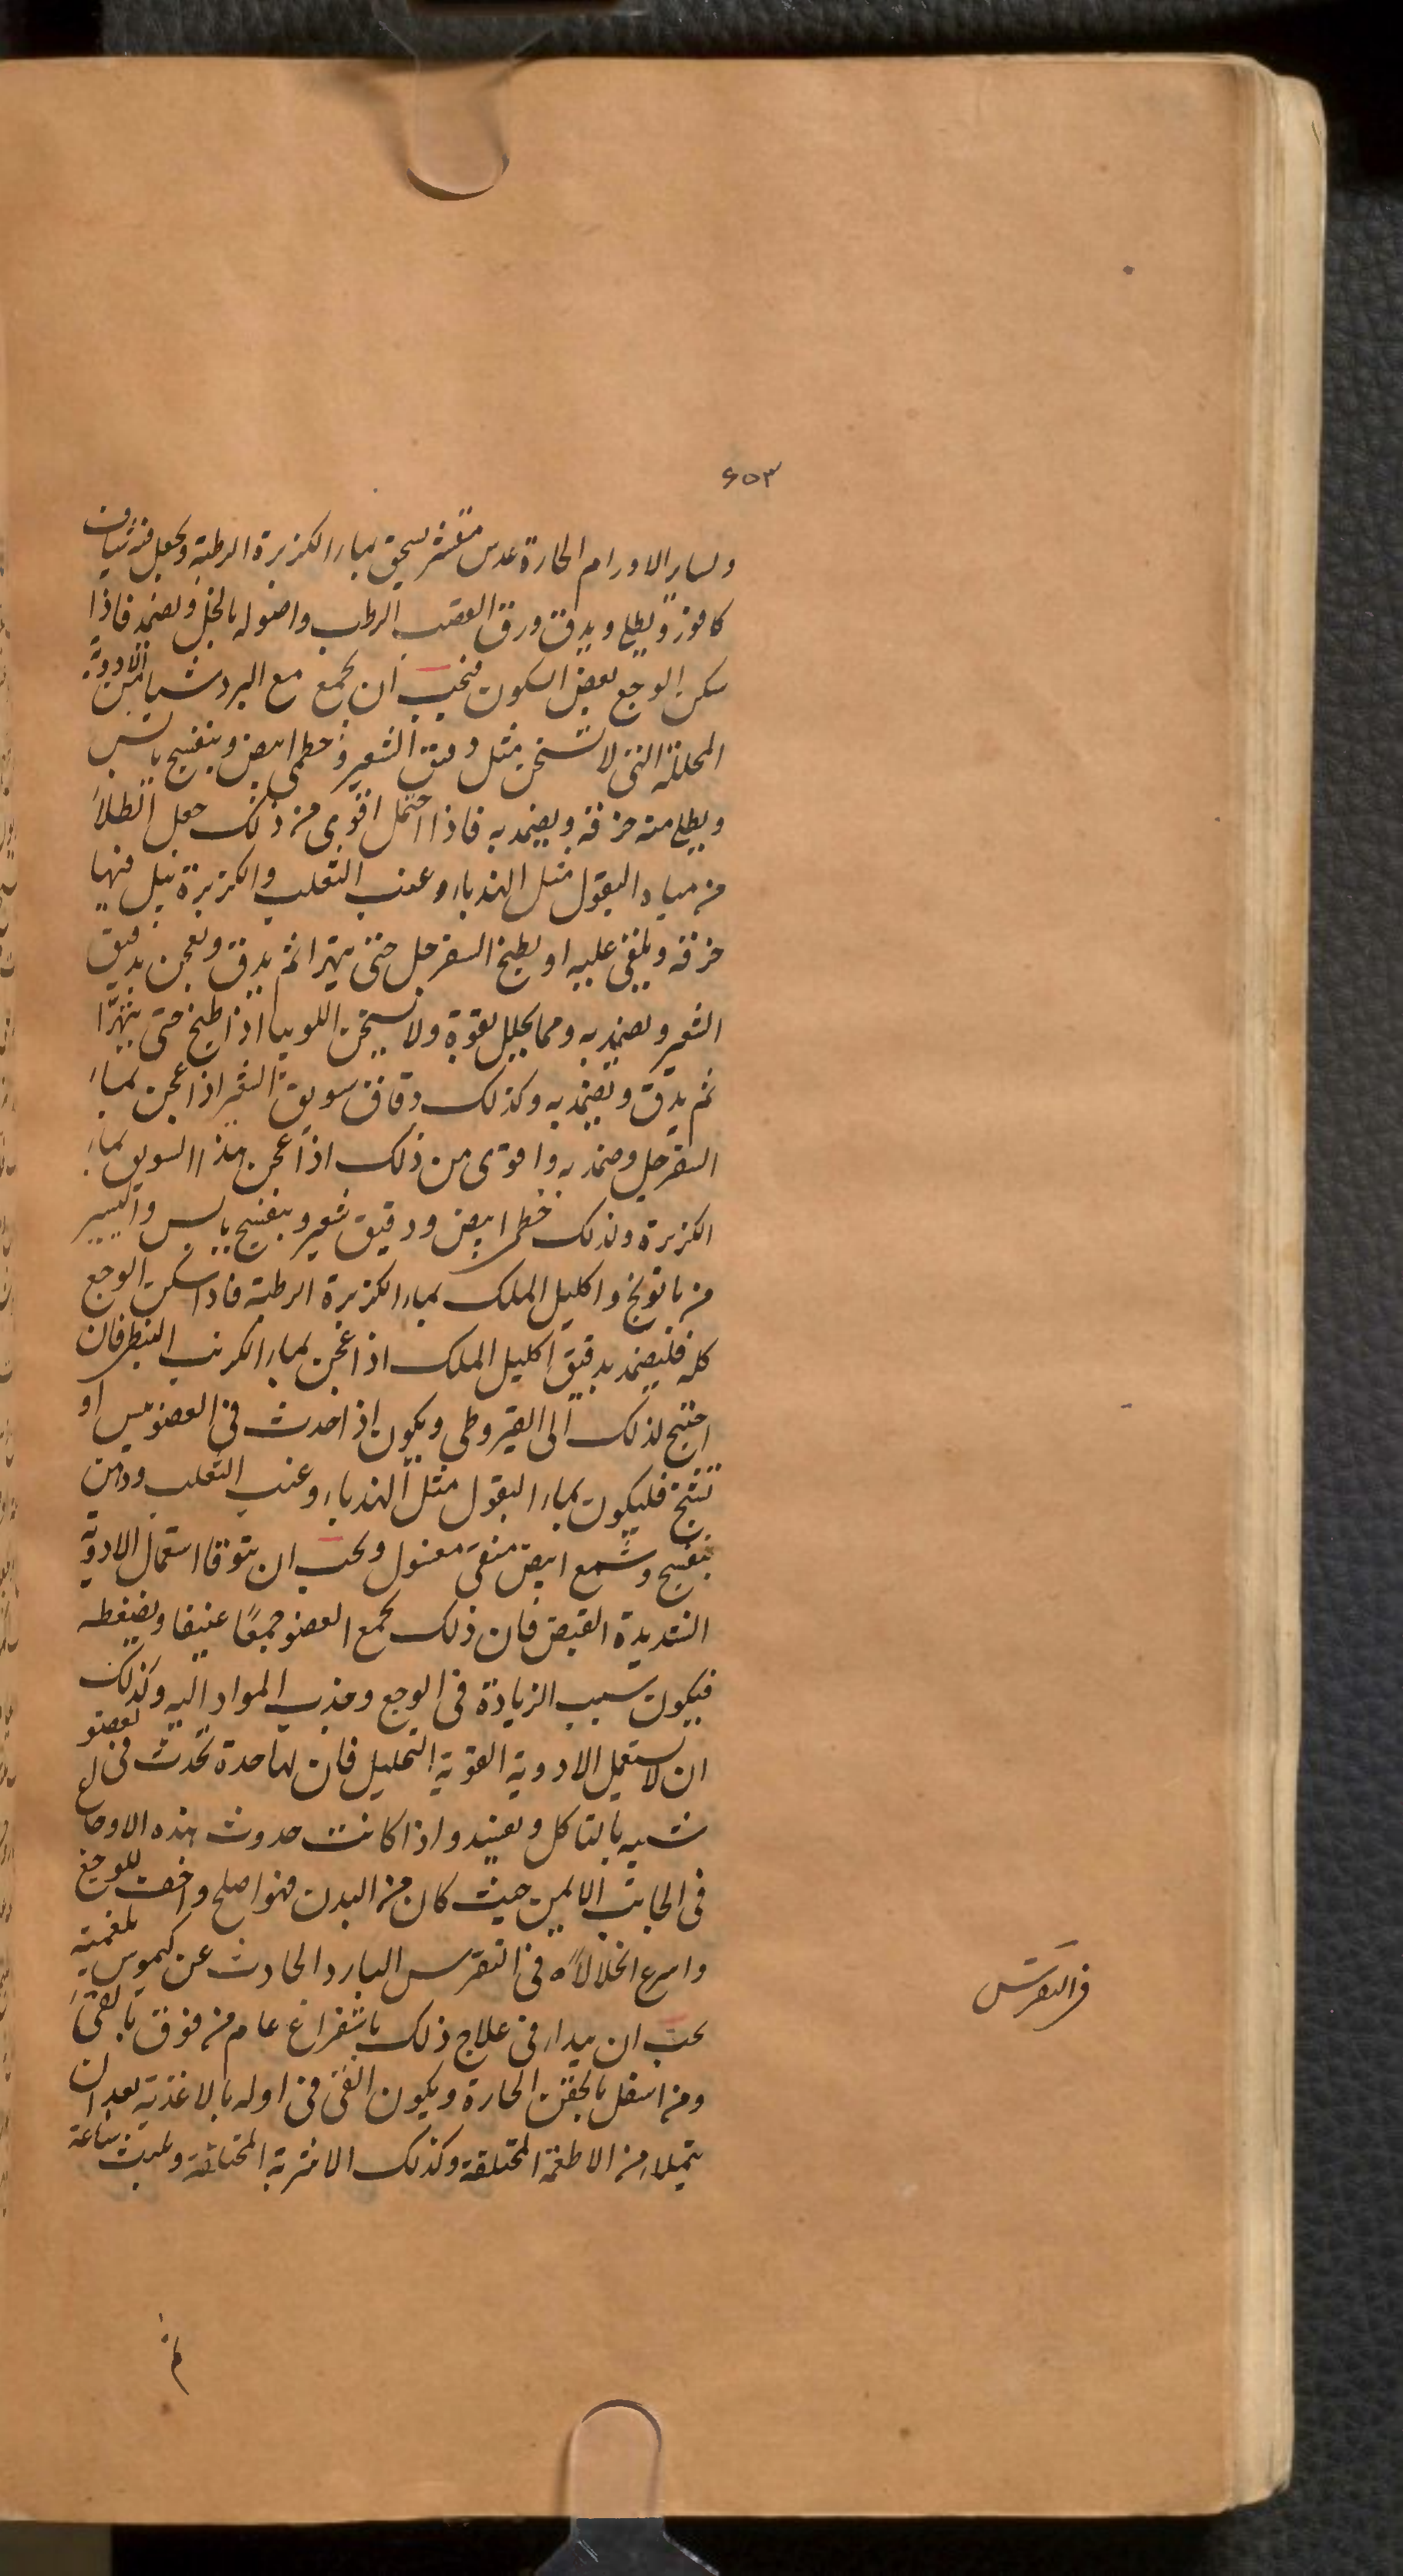 ۶۵۳
ولسایر الاورام الحارة عدس مقشر یسحق بماء الکزبرة الرطبة ویجعل فیه شیاف
کافور ویطلی ویدق ورق القصب الرطب واصوله بالخل ویضمد فاذا
سکن الوجع بعض السکون فیجب ان یجمع مع البرد شیا من الادویة
المحللة التی لا تسخن مثل دقیق الشعیر وخطمی ابیض وبنفسج یابس
ویطلی منه خرقة ویضمد به فاذا احتمل اقوی من ذلک جعل الطلاء
من میاه البقول مثل الهندباء وعنب الثعلب والکزبرة تبل فیها
خرقة ویلقی علیه او یطبخ السفرجل حتی یتهرا ثم یدق ویعجن بدقیق
الشعیر ویضمد به ومما یحلل بقوة ولا یسخن اللوبیا اذا طبخ حتی یتهرّا
ثم یدق ویضمد به وکذلک دقاق سویق الشعیر اذا عجن بماء
السفرجل وضمد به واقوی من ذلک اذا عجن هذا السویق بماء
الکزبرة وکذلک خطمی ابیض ودقیق شعیر وبنفسج یابس والیسیر
من بابونج واکلیل الملک بماء الکزبرة الرطبة فاذا سکن الوجع
کله فلیضمد بدقیق اکلیل الملک اذا عجن بماء الکرنب النبطی فان
احتیج لذلک الی القیروطی ویکون اذا حدث فی العضو یبس او
تشنج فلیکون بماء البقول مثل الهندباء وعنب الثعلب ودهن
بنفسج وشمع ابیض منقی مغسول ویجب ان یتوقا استعمال الادویة
الشدیدة القبض فان ذلک یجمع العضو جمعًا عنیفا ویضغطه
فیکون سبب الزیادة فی الوجع وجذب المواد الیه وکذلک
ان لا یستعمل الادویة القویة التحلیل فان لها حدة تحدث فی العضو
شبیه بالتاکل واذا کانت حدوث هذه الاوجاع
فی الجانب الایمن حیث کان من البدن فهو اصلح واخف للوجع
واسرع انحلالاً فی النقرس البارد الحادث عن کیموس بلغمیة
یجب ان یبدا فی علاج ذلک باستفراغ عام من فوق بالقیء
ومن اسفل بالحقن الحارة ویکون القیء فی اوله بالاغذیة بعد ان
یتملاء من الاطعمة المختلفة وکذلک الاشربة المختلفة ویلبث ساعة
فی النقرس
ثم